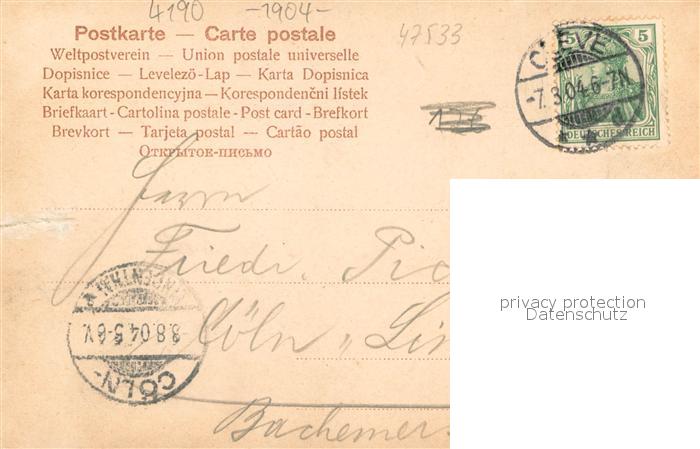 4190 -1904-
47533
Postkarte — Carte postale
Weltpostverein — Union postale universelle
Dopisnice — Levelező-Lap — Karta Dopisnica
Karta korespondencyjna — Korespondenční lístek
Briefkaart - Cartolina postale - Post card - Brefkort
Brevkort — Tarjeta postal — Cartão postal
Открытое-письмо
CLEVE
-7.3.04.6-7N
5 5
DEUTSCHES REICH
Herrn
Friedr.
Cöln
8.8.04.5-6V.
CÖLN-
privacy protection
Datenschutz